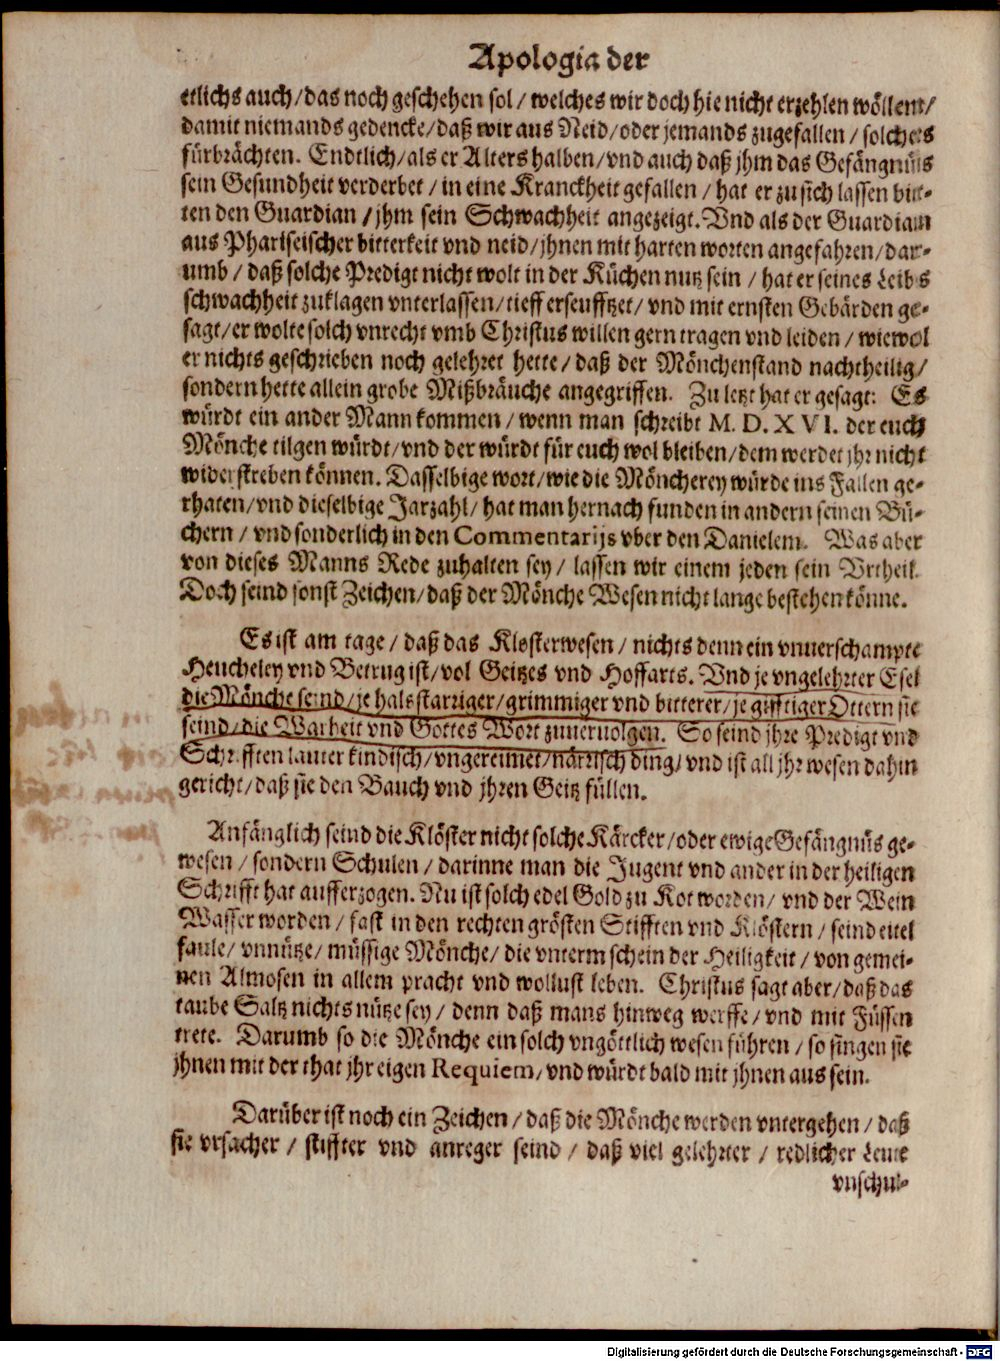 Apologia der
etlichs auch/das noch geschehen sol / welches wir doch hie nicht erzehlen wöllenn/
damit niemands gedencke/daß wir aus Neid/oder jemands zugefallen / solches
fürbrächten. Endtlich/als er Alters halben/vnd auch daß jhm das Gefängnüs
sein Gesundheit verderbet / in eine Kranckheit gefallen / hat er zu sich lassen bit-
ten den Guardian / jhm sein Schwachheit angezeigt. Vnd als der Guardian
aus Phariseischer bitterkeit vnd neid/jhnen mit harten worten angefahren/dar-
umb / daß solche Predigt nicht wolt in der Küchen nutz sein / hat er seines Leibs
schwachheit zuklagen vnterlassen/tieff erseufftzet/ vnd mit ernsten Gebärden ge-
sagt/er wolte solch vnrecht vmb Christus willen gern tragen vnd leiden / wiewol
er nichts geschrieben noch gelehret hette/ daß der Mönchenstand nachtheilig/
sondern hette allein grobe Mißbräuche angegriffen. Zu letzt hat er gesagt: Es
würdt ein ander Mann kommen / wenn man schreibt M. D. X VI. der euch
Mönche tilgen würdt/vnd der würdt für euch wol bleiben/dem werdet jhr nicht
widerstreben können. Dasselbige wort/wie die Möncherey würde ins Fallen ge-
rhaten/vnd dieselbige Jarzahl/ hat man hernach funden in andern seinen Bü-
chern / vnd sonderlich in den Commentarijs vber den Danielem. Was aber
von dieses Manns Rede zuhalten sey/ lassen wir einem jeden sein Vrtheil.
Doch seind sonst Zeichen/daß der Mönche Wesen nicht lange bestehen könne.
Es ist am tage/ daß das Klosterwesen / nichts denn ein vnuerschampte
Heucheley vnd Betrug ist/vol Geitzes vnd Hoffarts. Vnd je vngelehrter Esel
die Mönche seind/je halsstarriger/grimmiger vnd bitterer/je gifftiger Ottern sie
seind/die Warheit vnd Gottes Wort zuueruolgen. So seind jhre Predigt vnd
Schrifften lauter kindisch/vngereimet/närrisch ding/ vnd ist all jhr wesen dahin
gericht/daß sie den Bauch vnd jhren Geitz füllen.
Anfänglich seind die Klöster nicht solche Kärcker/oder ewige Gefängnüs ge-
wesen / sondern Schulen / darinne man die Jugent vnd ander in der heiligen
Schrifft hat aufferzogen. Nu ist solch edel Gold zu Kot worden/ vnd der Wein
Wasser worden / fast in den rechten grösten Stifften vnd Klöstern / seind eitel
faule/ vnnütze/ müssige Mönche/ die vnterm schein der Heiligkeit / von gemei-
nen Almosen in allem pracht vnd wollust leben. Christus sagt aber/daß das
taube Saltz nichts nütze sey / denn daß mans hinweg werffe/vnd mit Füssen
trete. Darumb so die Mönche ein solch vngöttlich wesen führen / so singen sie
jhnen mit der that jhr eigen Requiem/vnd würdt bald mit jhnen aus sein.
Darüber ist noch ein Zeichen / daß die Mönche werden vntergehen / daß
sie vrsacher / stiffter vnd anreger seind / daß viel gelehrter / redlicher Leute
vnschul-
Digitalisierung gefördert durch die Deutsche Forschungsgemeinschaft - DFG